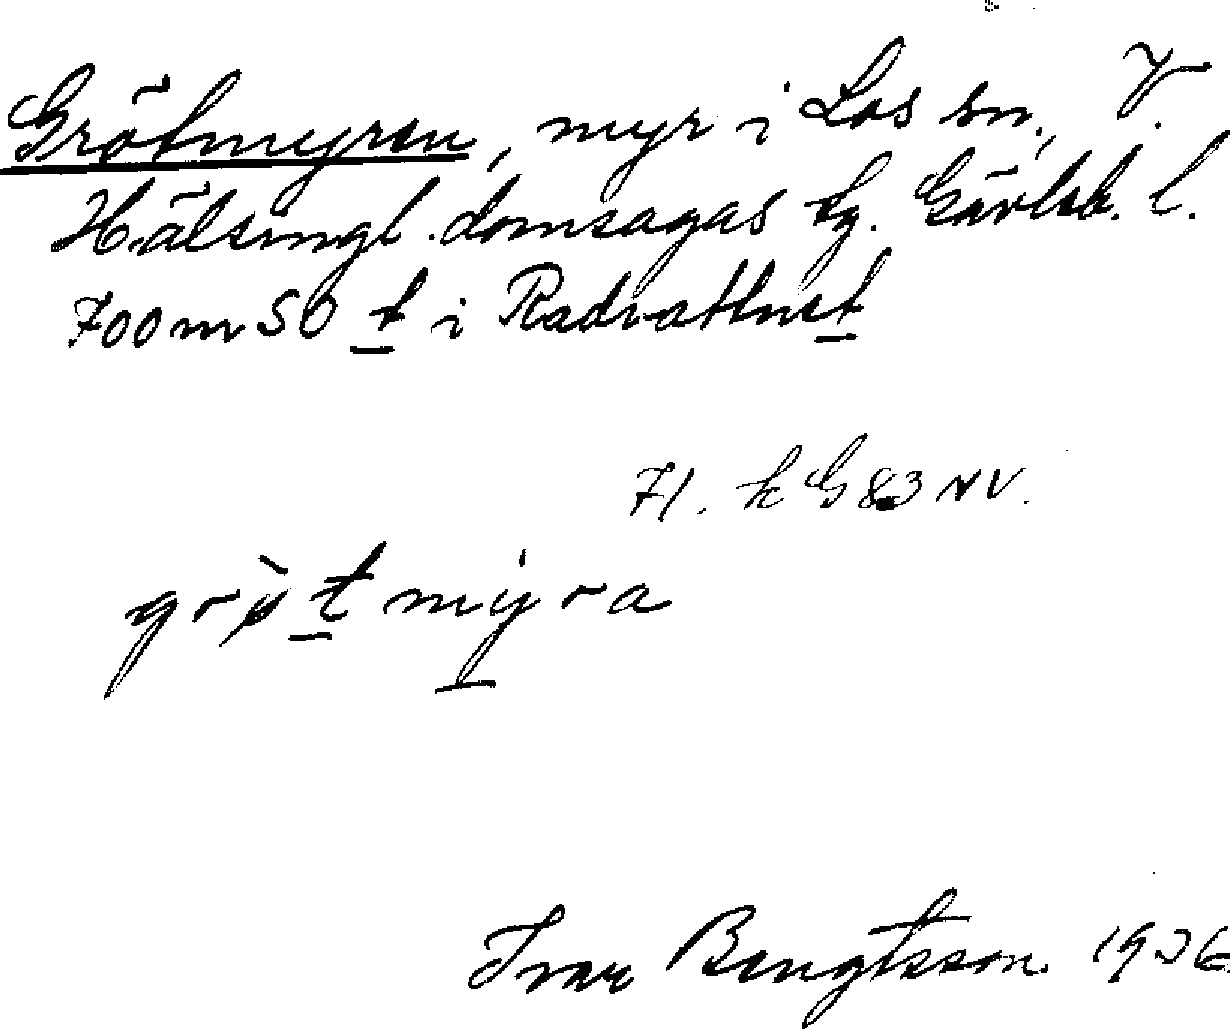 Grötmyren, myr i Los sn., V.
Hälsingl. domsagas tg. Gävleb. l.
700 m SO t i Radvattnet
Fl. k G 83 NV.
grø̀tmy̍ra
Ivar Bengtsson 1936